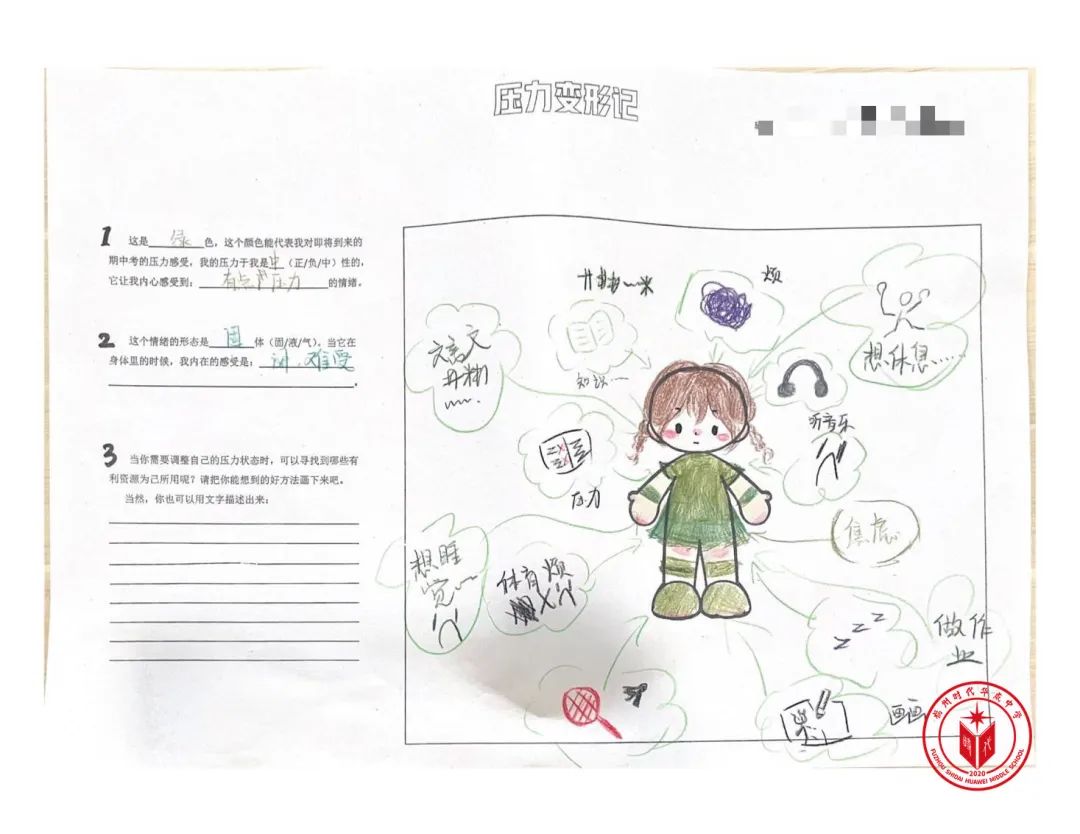 压力变形记
1 这是 绿 色，这个颜色能代表我对即将到来的
期中考的压力感受，我的压力于我是 中 （正/负/中）性的，
它让我内心感受到： 有点 压力 的情绪。
2 这个情绪的形态是 固 体（固/液/气）。当它在
身体里的时候，我内在的感受是： 闷、难受
3 当你需要调整自己的压力状态时，可以寻找到哪些有
利资源为己所用呢？请把你能想到的好方法画下来吧。
当然，你也可以用文字描述出来：
烦
知识
想休息……
听音乐
压力
焦虑
想睡
觉
体育 烦
zzz
做作
业
画画
福州时代华威中学
FUZHOU SHIDAI HUAWEI MIDDLE SCHOOL
2020